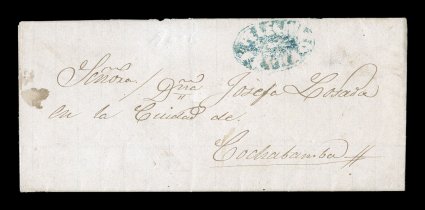 Señora / Dña Josefa Losada
en la Ciudad de
Cochabamba